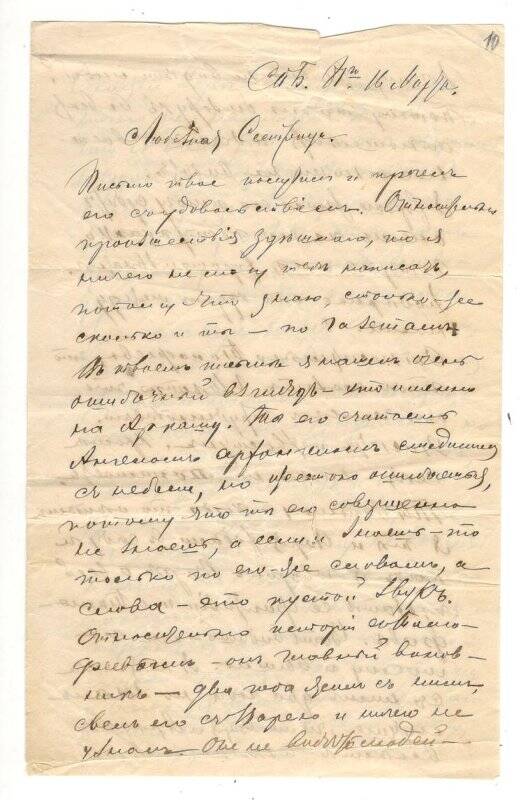 10
СПБ. 16 Марта.
Любезная Сестрица.
Письмо твое получил и прочел
его с удовольствием. Относительно
проишествия здешнаго, то я
ничего не могу тебе написать,
потому что знаю, столько-же
сколько и ты — по газетам.
Въ твоемъ письме я нашел очень
ошибочный взглядъ — это именно
на Аркашу. Ты его считаешь
Ангеломъ
съ небеси, но ошибаешься,
потому что ты его совершенно
не знаешь, а если и знаешь — то
только по его-же словам, а
слова — это пустой звукъ.
Относительно исторiи
— онъ главный винов-
никъ — два года съ ними,
свелъ его съ и ничего не
узналъ. Он не людей —